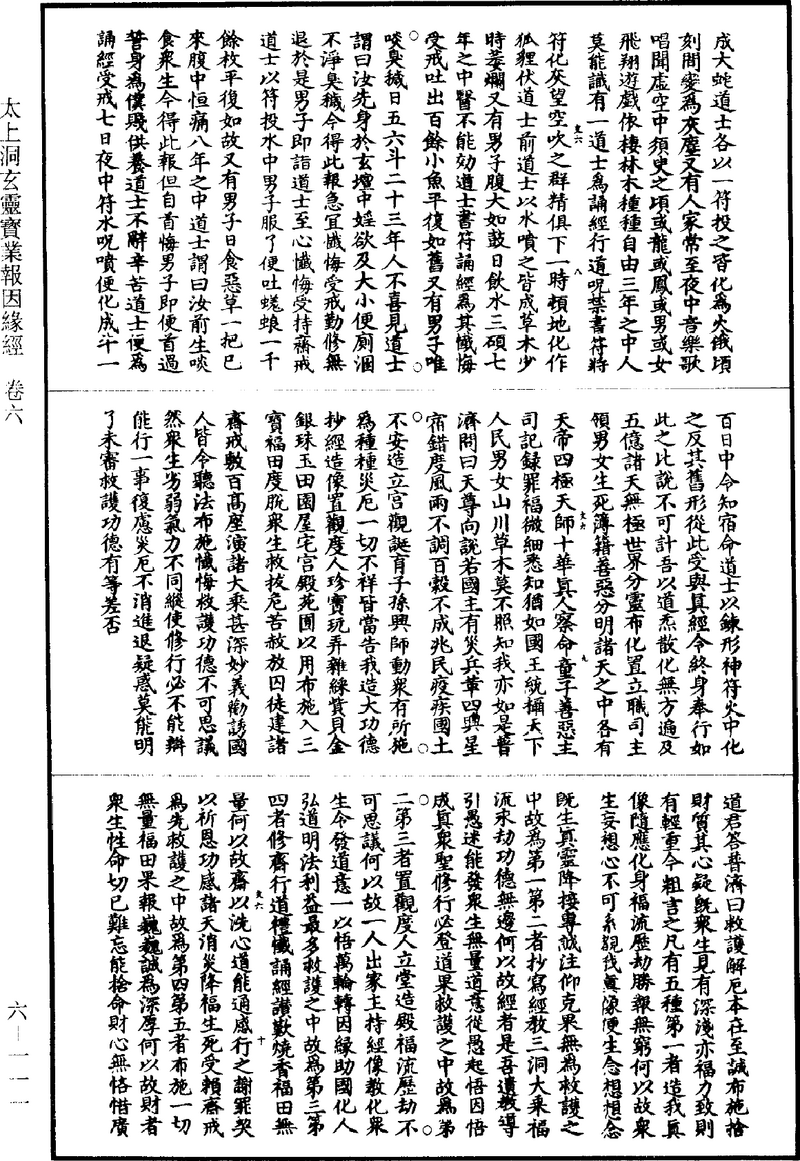 成大蛇道士各以一符投之皆化爲火俄頃
刻間變爲灰塵又有人家常至夜中音樂歌
唱聞虛空中須臾之頃或龍或鳳或男或女
飛翔遊戲依棲林木種種自由三年之中人
莫能識有一道士爲誦經行道呪禁書符將
符化灰望空吹之群精俱下一時頓地化作
狐狸伏道士前道士以水噴之皆成草木少
時萎爛又有男子腹大如鼓日飲水三碩七
年之中醫不能効道士書符誦經爲其懺悔
受戒吐出百餘小魚平復如舊又有男子唯
啖臭穢日五六斗二十三年人不喜見道士
謂曰汝先身於玄壇中婬欲及大小便廁溷
不淨臭穢今得此報急宜懺悔受戒勤修無
退於是男子即詣道士至心懺悔受持齋戒
道士以符投水中男子服了便吐蜣蜋一千
餘枚平復如故又有男子日食惡草一把已
來腹中恒痛八年之中道士謂曰汝前生啖
食衆生今得此報但自首悔男子即便首過
誓身爲僕賤供養道士不辭辛苦道士便爲
誦經受戒七日夜中符水呪噴便化成斗一
百日中令知宿命道士以鍊形神符火中化
之反其舊形從此受與真經令終身奉行如
此之比說不可計吾以道炁散化無方遍及
五億諸天無極世界分靈布化置立職司主
領男女生死簿籍善惡分明諸天之中各有
天帝四極天師十華真人察命童子善惡主
司記録罪福微細悉知猶如國王統攝天下
人民男女山川草木莫不照知我亦如是普
濟問曰天尊向說若國主有災兵革四興星
宿錯度風雨不調百穀不成兆民疫疾國土
不安造立宮觀誕育子孫興師動衆有所施
爲種種災厄一切不祥皆當告我造大功德
抄經造像置觀度人珍寶玩弄雜綵貲貝金
銀珠玉田園屋宅宮殿苑囿以用布施入三
寶福田度脫衆生救拔危苦赦放囚徒建諸
齋戒敷百高座演諸大乘甚深妙義勸誘國
人皆令聽法布施懺悔救護功德不可思議
然衆生劣弱氣力不同縱使修行必不能辦
能行一事復慮災厄不消進退疑惑莫能明
了未審救護功德有等差否
道君答普濟曰救護解厄本在至誠布施捨
財質其心疑既衆生見有深淺亦福力致則
有輕重今粗言之凡有五種第一者造我真
像隨應化身福流歷劫勝報無窮何以故衆
生妄想心不可系覩我真像便生念想想念
既生真靈降接專誠注仰克果無爲救護之
中故爲第一第二者抄寫經教三洞大乘福
流永劫功德無邊何以故經者是吾遺教導
引愚迷能發衆生無量道意從愚起悟因悟
成真衆聖修行必登道果救護之中故爲第
二第三者置觀度人立堂造殿福流歷劫不
可思議何以故一人出家主持經像教化衆
生令發道意一以悟萬輪轉因緣助國化人
弘道明法利益最多救護之中故爲第三第
四者修齋行道禮懺誦經讚歎燒香福田無
量何以故齋以洗心道能通感行之謝罪契
以祈恩功感諸天消災降福生死受賴齋戒
爲先救護之中故爲第四第五者布施一切
無量福田果報巍巍誠爲深厚何以故財者
衆生性命切己難忘能捨命財心無悋惜廣
太上洞玄靈寶業報因緣經　卷六
六－一一一